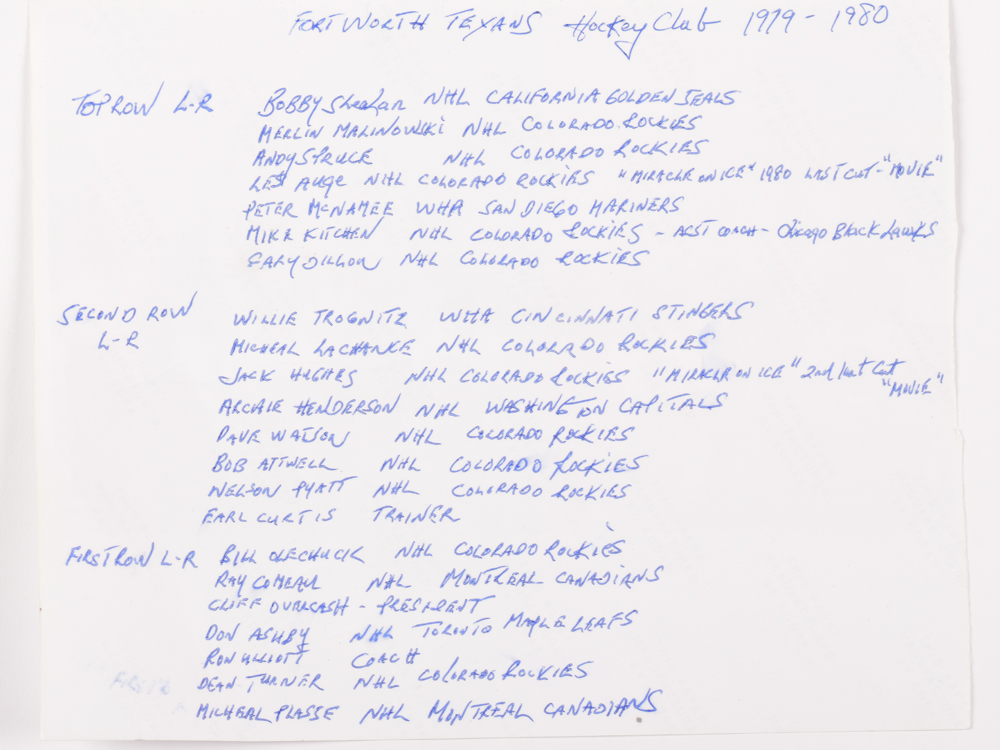 FORT WORTH TEXANS Hockey Club 1979 - 1980
TOP ROW L-R BOBBY Sheehan NHL CALIFORNIA GOLDEN SEALS
MERLIN MALINOWSKI NHL COLORADO ROCKIES
ANDY SPRUCE NHL COLORADO ROCKIES
LES AUGE NHL COLORADO ROCKIES "MIRACLE ON ICE" 1980 LAST CUT - "MOVIE"
PETER McNAMEE WHA SAN DIEGO MARINERS
MIKE KITCHEN NHL COLORADO ROCKIES - ASST COACH - Chicago Black Hawks
GARY DILLON NHL COLORADO ROCKIES
SECOND ROW WILLIE TROGNITZ WHA CINCINNATI STINGERS
L-R MICHEAL LACHANCE NHL COLORADO ROCKIES
JACK HUGHES NHL COLORADO ROCKIES "MIRACLE ON ICE" 2nd last Cut
"MOVIE"
ARCHIE HENDERSON NHL WASHINGTON CAPITALS
DAVE WATSON NHL COLORADO ROCKIES
BOB ATTWELL NHL COLORADO ROCKIES
NELSON PYATT NHL COLORADO ROCKIES
EARL CURTIS TRAINER
FIRST ROW L-R BILL OLECHUCK NHL COLORADO ROCKIES
RAY COMEAU NHL MONTREAL CANADIANS
CLIFF OVERCASH - PRESIDENT
DON ASHBY NHL TORONTO MAPLE LEAFS
RON ULLIOTT COACH
DEAN TURNER NHL COLORADO ROCKIES
MICHEAL PLASSE NHL MONTREAL CANADIANS